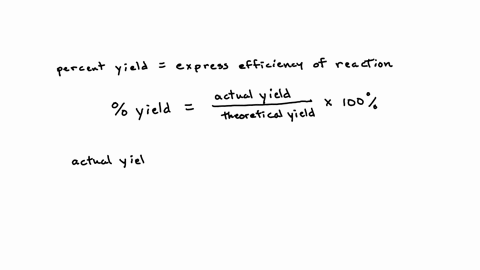 percent yield = express efficiency of reaction
% yield = actual yield / theoretical yield × 100%
actual yiel